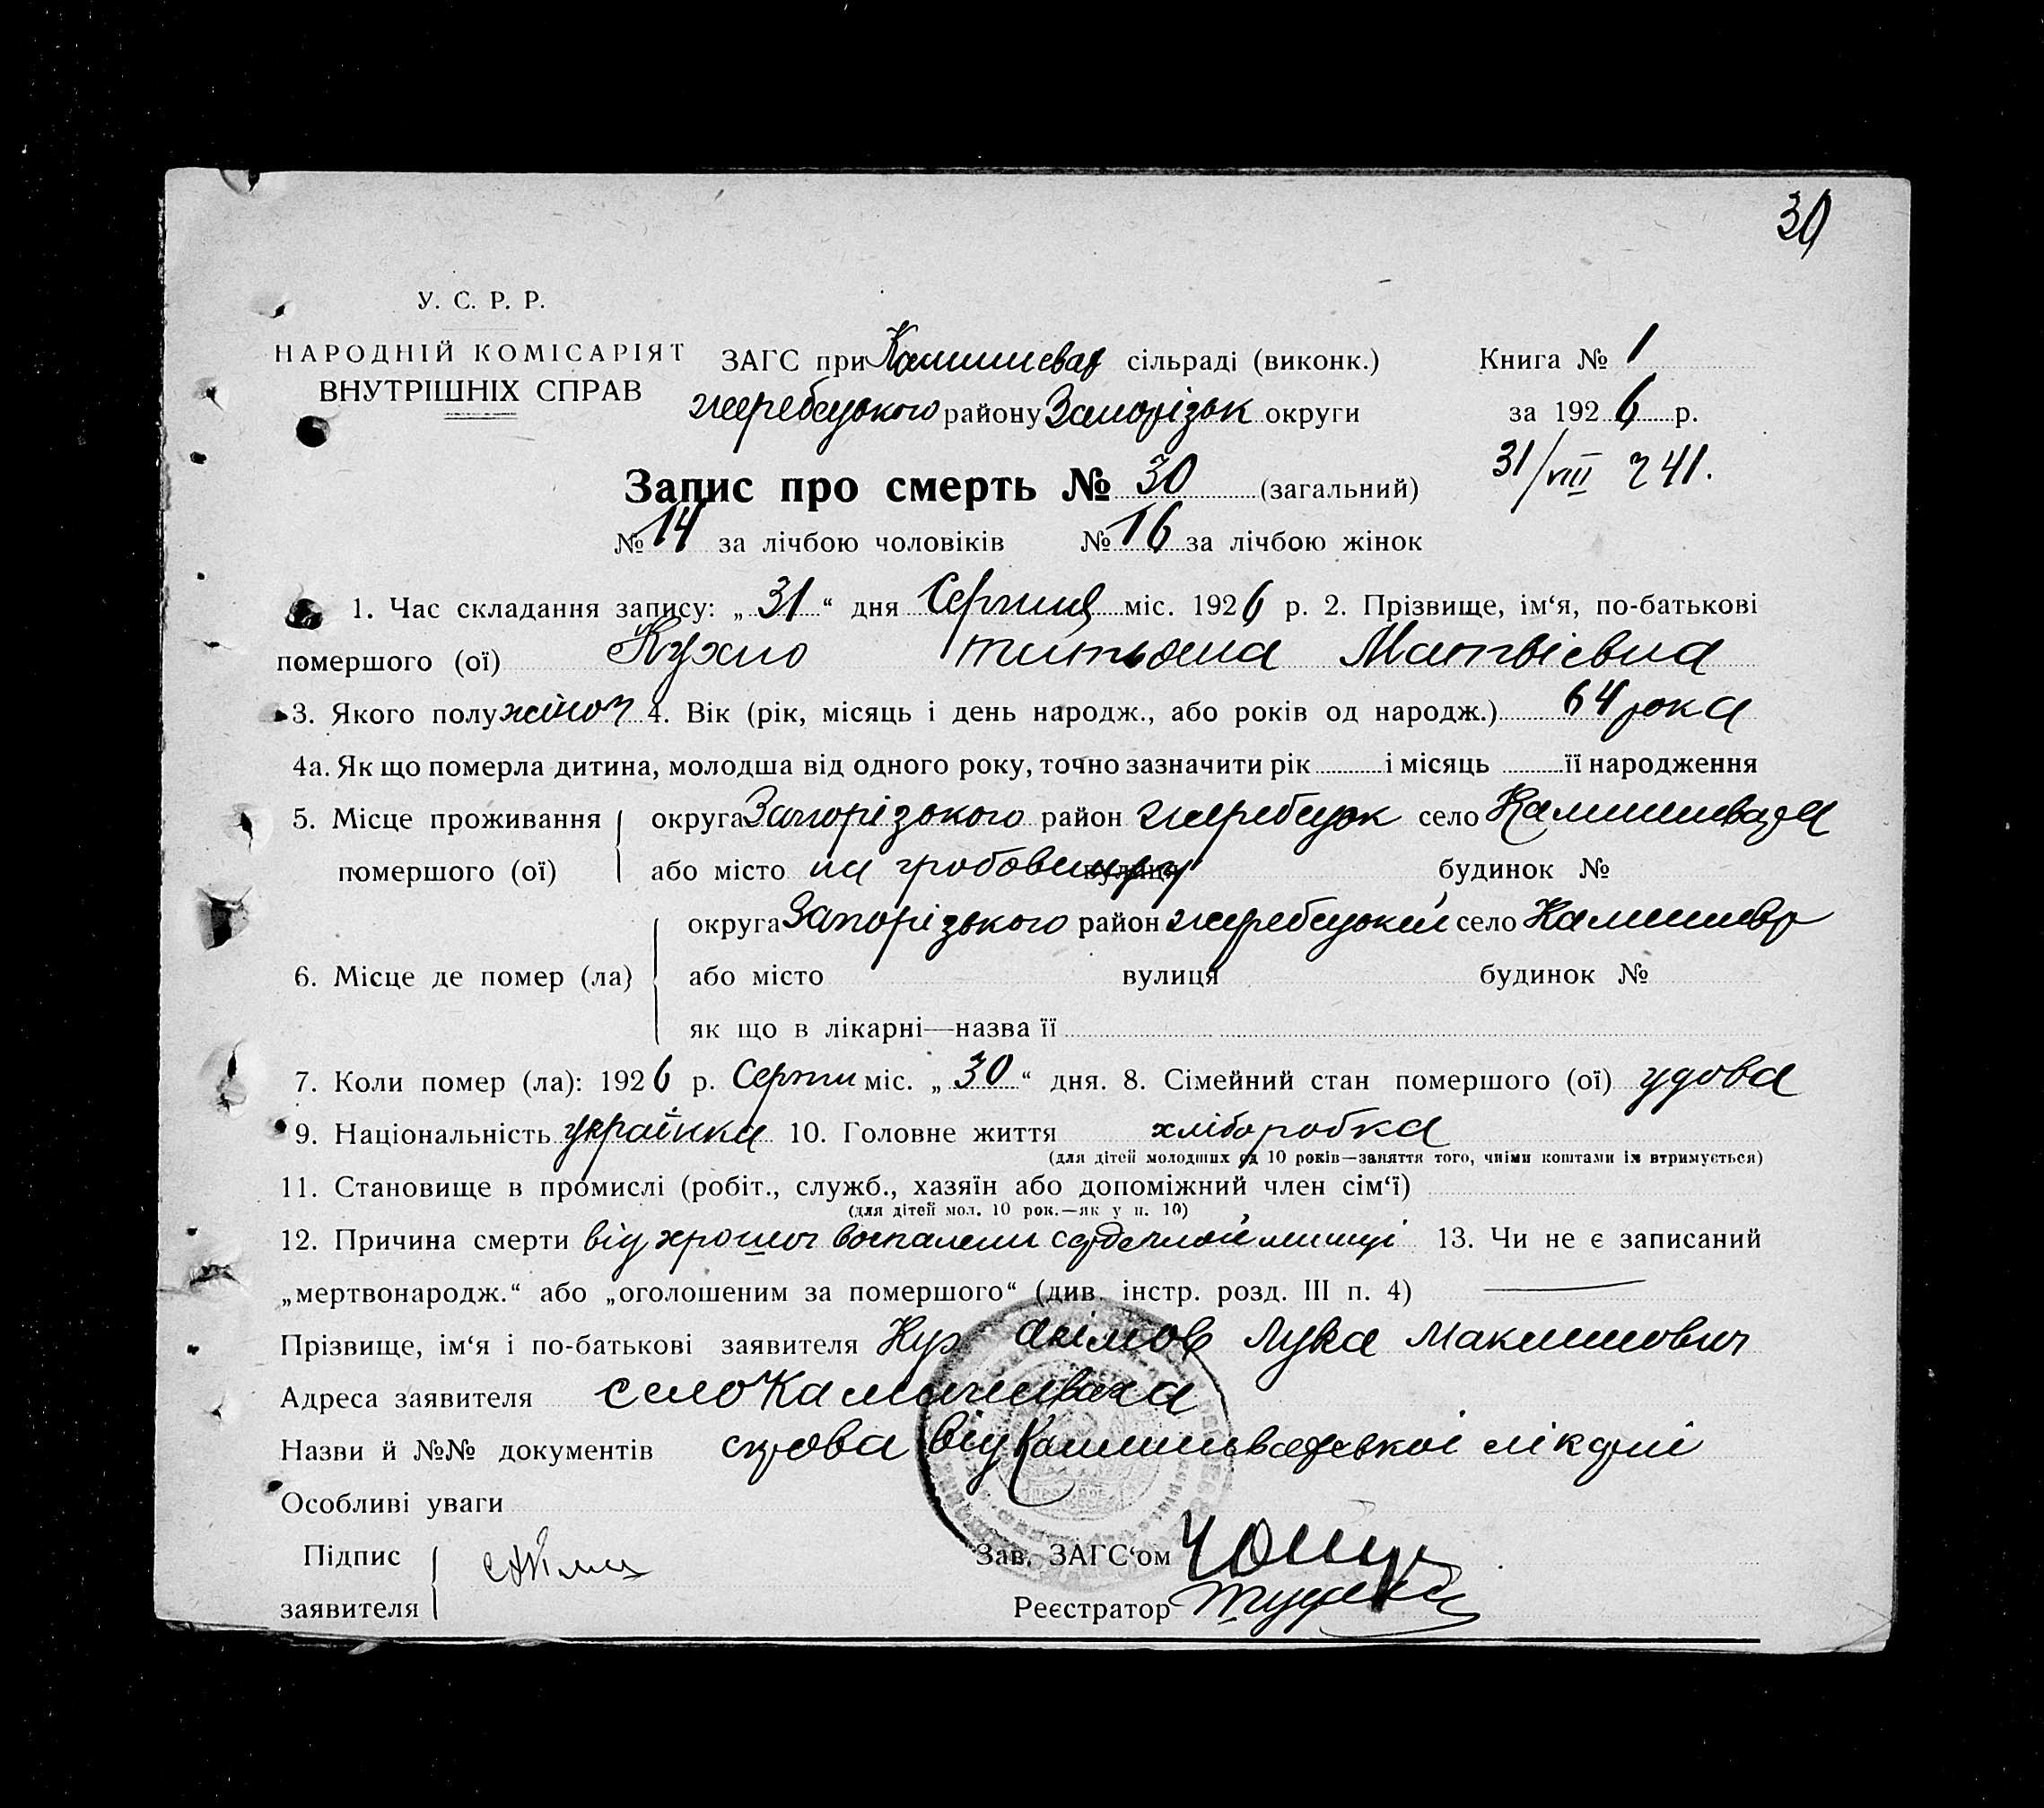 30
У. С. Р. Р.
НАРОДНІЙ КОМІСАРІЯТ
ВНУТРІШНІХ СПРАВ
ЗАГС при Камишеват сільраді (виконк.) Книга № 1
жеребецького району Запорізьк округи за 1926 р.
31/VIII 241.
Запис про смерть № 30 (загальний)
№ 14 за лічбою чоловіків № 16 за лічбою жінок
1. Час складання запису: „31“ дня Серпня міс. 1926 р. 2. Прізвище, ім‘я, по-батькові
помершого (ої) Кухно Матвієвна
3. Якого полу жіноч 4. Вік (рік, місяць і день народж., або років од народж.) 64 рока
4а. Як що померла дитина, молодша від одного року, точно зазначити рік і місяць її народження
5. Місце проживання округа Запорізького район жеребецьк село
помершого (ої) або місто на вулиця будинок №
округа Запорізького район жеребецький село
6. Місце де помер (ла) або місто вулиця будинок №
як що в лікарні—назва її
7. Коли помер (ла): 1926 р. Серпн міс. „30“ дня. 8. Сімейний стан помершого (ої) удова
9. Національність українка 10. Головне життя хліборобка
(для дітей молодших од 10 років—заняття того, чиїми коштами їх втримується)
11. Становище в промислі (робіт., служб., хазяїн або допоміжний член сім‘ї)
(для дітей мол. 10 рок.—як у п. 10)
12. Причина смерти від 13. Чи не є записаний
„мертвонародж.“ або „оголошеним за помершого“ (див. інстр. розд. III п. 4)
Прізвище, ім‘я і по-батькові заявителя Лука Максимович
Адреса заявителя село
Назви й №№ документів від
Особливі уваги
Підпис
заявителя
Зав. ЗАГС‘ом
Реєстратор